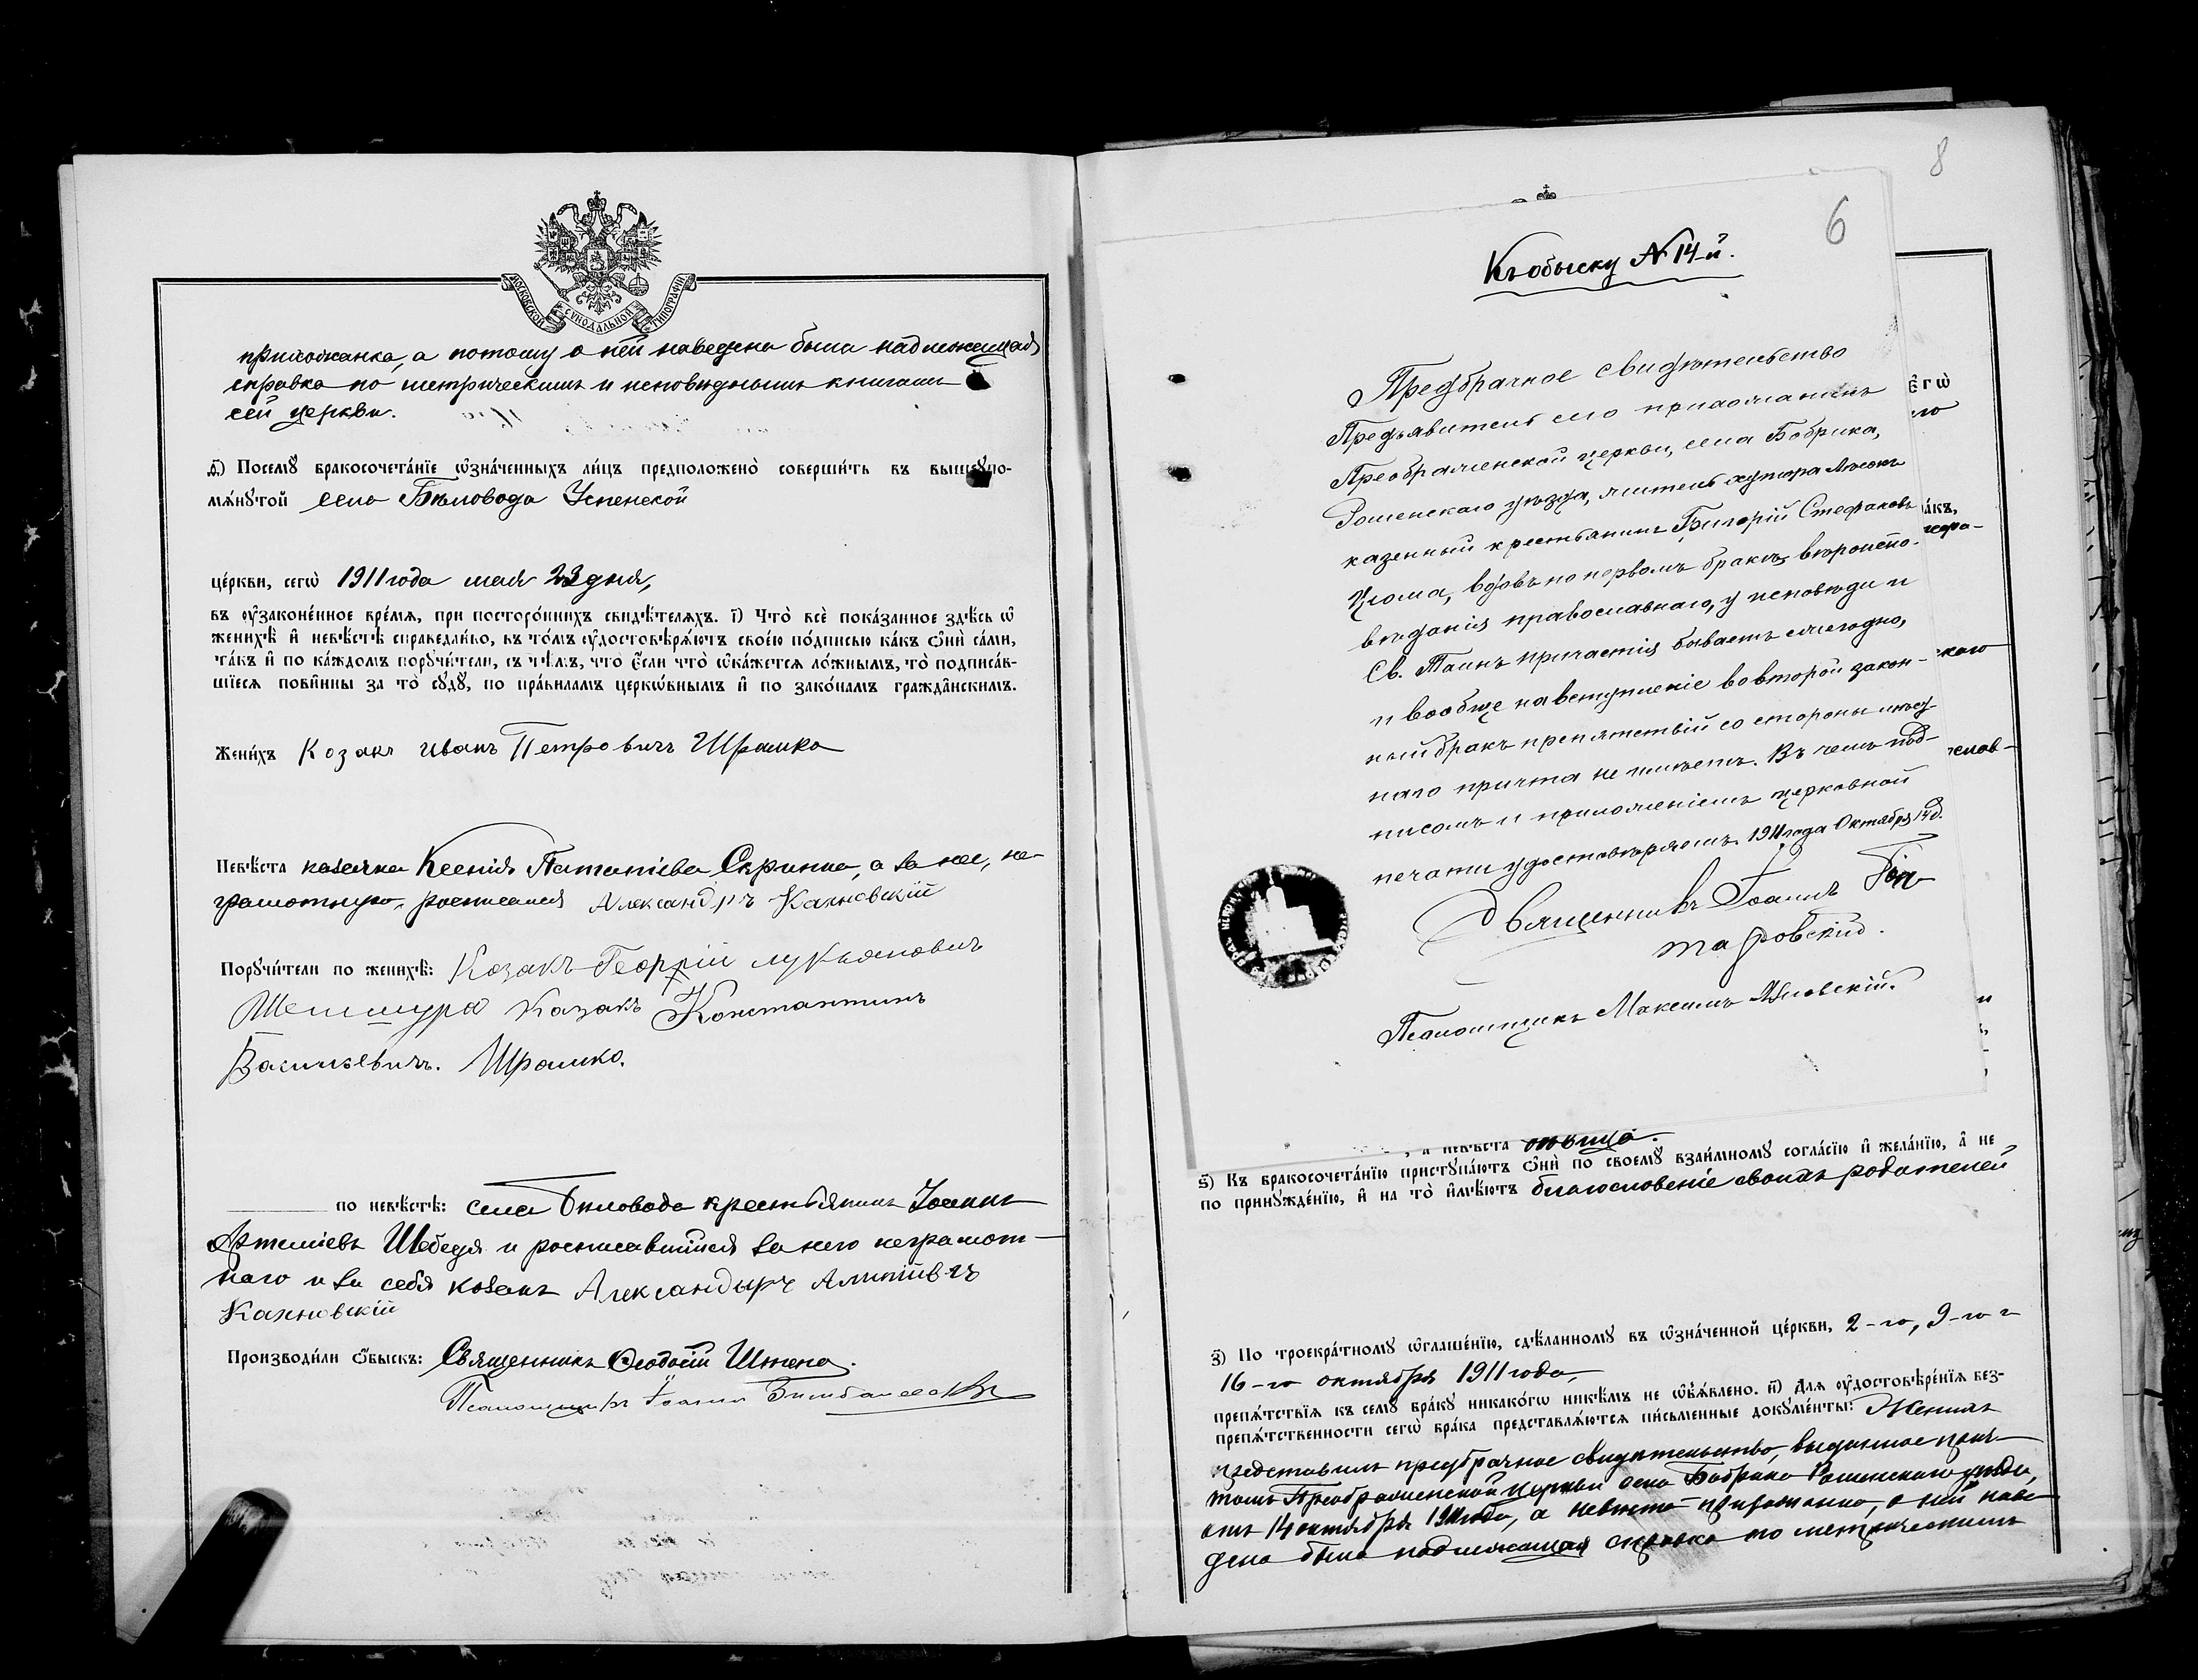 МОСКОВСКОЙ СѴНОДАЛЬНОЙ ТИПОГРАФІИ
прихожанка, а потому о ней наведена была надлежащая
справка по метрическимъ и исповѣднымъ книгамъ
сей церкви.
д҃) Посемꙋ бракосочета́нїе ѡ҆зна́ченныхъ ли́цъ предположено̀ соверши́ть въ вышеꙋпо-
мѧ́нꙋтой села Бѣловода Успенской
це́ркви, сегѡ̀ 1911 года мая 23 дня,
въ ᲂу҆законе́нное вре́мѧ, при посторо́ннихъ свидѣ́телѧхъ. і҃) Что̀ всѐ пока́занное здѣ́сь ѡ҆
женихѣ̀ и҆ невѣ́стѣ справедли́во, въ то́мъ ᲂу҆достовѣрѧ́ютъ свое́ю по́дписью ка́къ ѻ҆нѝ са́ми,
та́къ и҆ по ка́ждомъ порꙋчи́тели, съ тѣ́мъ, что є҆́сли что̀ ѡ҆ка́жетсѧ ло́жнымъ, то̀ подписа́в-
шїесѧ пови́нны за то̀ сꙋдꙋ̀, по пра́виламъ церкѡ́внымъ и҆ по зако́намъ гражда̑нскимъ.
Жени́хъ Козакъ Иванъ Петровичъ Шрамко
Невѣ́ста козачка Ксенія Скрипка, а за нее, не-
грамотную, росписался Александръ Кахновскій
Порꙋчи́тели по женихѣ̀: Козакъ Георгій Лукьяновичъ
Шемшура Казакъ Константинъ
Васильевичъ. Шрамко.
по невѣ́стѣ: села Бѣловода крестьянинъ Іоаннъ
Артеміевъ и росписавшійся за него неграмот-
наго и за себя козакъ Александыръ
Кахновскій
Производи́ли ѻ҆́быскъ: Священникъ Ѳеодосій
Псаломщикъ Іоаннъ
8
6
Къ обыску N 14-й.
Предбрачное свидѣтельство
Предъявитель сего прихожанинъ
Преображенской церкви, села Бобрика,
Роменскаго уѣзда, житель хутора
казенный крестьянинъ Григорій Стефановъ
вдовъ по первомъ бракѣ, вѣроиспо-
вѣданія православнаго, у исповѣди и
Св. Таинъ причастія бываетъ ежегодно,
и вообще на вступленіе во второй закон-
ный бракъ препятствій со стороны мѣст-
наго причта не имѣетъ. Въ чемъ под-
писомъ и приложеніемъ церковной
печати удостовѣряемъ. 1911 года Октября 14 д.
Священникъ Іоаннъ
Псаломщикъ Максимъ
є҆гѡ̀
го
а́къ,
скаго
, а҆ невѣ́ста дѣвица.
ѕ҃) Къ бракосочета́нїю пристꙋпа́ютъ ѻ҆нѝ по своемꙋ̀ взаи́мномꙋ согла́сїю и҆ жела́нїю, а҆ не
по принꙋжде́нїю, и҆ на то̀ и҆мѣ́ютъ благословеніе своихъ родителей
з҃) По троекра́тномꙋ ѡ҆глаше́нїю, сдѣ́ланномꙋ въ ѡ҆зна́ченной це́ркви, 2-го, 9-го и
16-го октября 1911 года,
препѧ́тствїѧ къ семꙋ̀ бра́кꙋ никако́гѡ никѣ́мъ не ѡ҆б̾ѧ́влено. и҃) Длѧ ᲂу҆достовѣре́нїѧ без-
препѧ́тственности сегѡ̀ бра́ка представлѧ́ютсѧ пи́сьменные докꙋме́нты: Женихъ
представилъ предбрачное свидѣтельство, выданное прич-
томъ Преображенской церкви села Бобрика Роменскаго уѣзда,
отъ 14 октября 1911 года, а невѣста прихожанка, о ней наве-
дена была надлежащая справка по метрическимъ